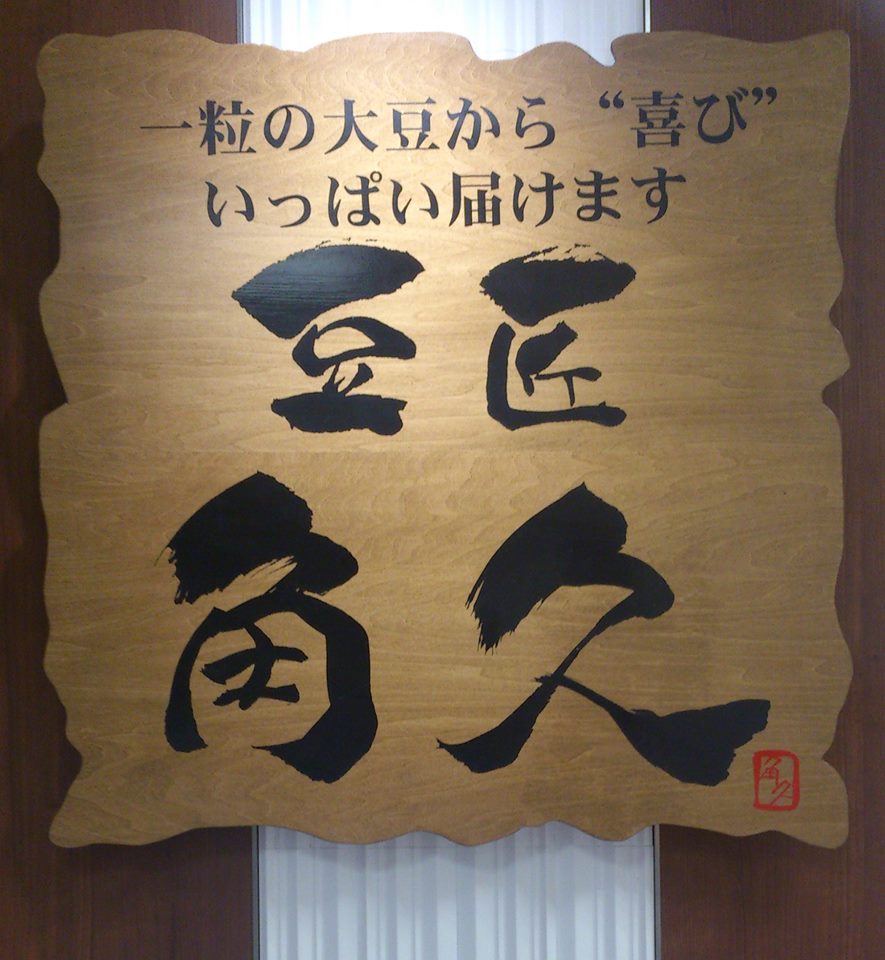 一粒の大豆から“喜び”
いっぱい届けます
豆匠
角久
角久